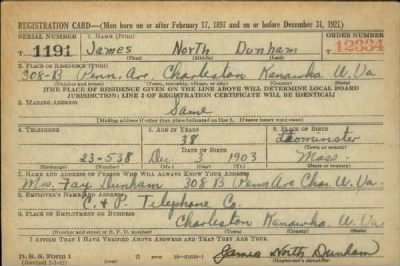 REGISTRATION CARD—(Men born on or after February 17, 1897 and on or before December 31, 1921)
SERIAL NUMBER 1. NAME (Print) ORDER NUMBER
T 1191 James North Dunham 12334
(First) (Middle) (Last)
2. PLACE OF RESIDENCE (Print)
308-B Penn. Ave. Charleston Kanawha W. Va
(Number and street) (Town, township, village, or city) (County) (State)
[THE PLACE OF RESIDENCE GIVEN ON THE LINE ABOVE WILL DETERMINE LOCAL BOARD
JURISDICTION; LINE 2 OF REGISTRATION CERTIFICATE WILL BE IDENTICAL]
3. MAILING ADDRESS
Same
[Mailing address if other than place indicated on line 2. If same insert word same]
4. TELEPHONE 5. AGE IN YEARS 6. PLACE OF BIRTH
38 Leominster
DATE OF BIRTH (Town or county)
23-538 Dec 1903 Mass.
(Exchange) (Number) (Mo.) (Day) (Yr.) (State or country)
7. NAME AND ADDRESS OF PERSON WHO WILL ALWAYS KNOW YOUR ADDRESS
Mrs. Fay Dunham 308 B Penn Ave Chas. W. Va.
8. EMPLOYER'S NAME AND ADDRESS
C. & P. Telephone Co.
9. PLACE OF EMPLOYMENT OR BUSINESS
Charleston Kanawha W. Va
(Number and street or R. F. D. number) (Town) (County) (State)
I AFFIRM THAT I HAVE VERIFIED ABOVE ANSWERS AND THAT THEY ARE TRUE.
James North Dunham
D. S. S. Form 1
(Registrant's signature)